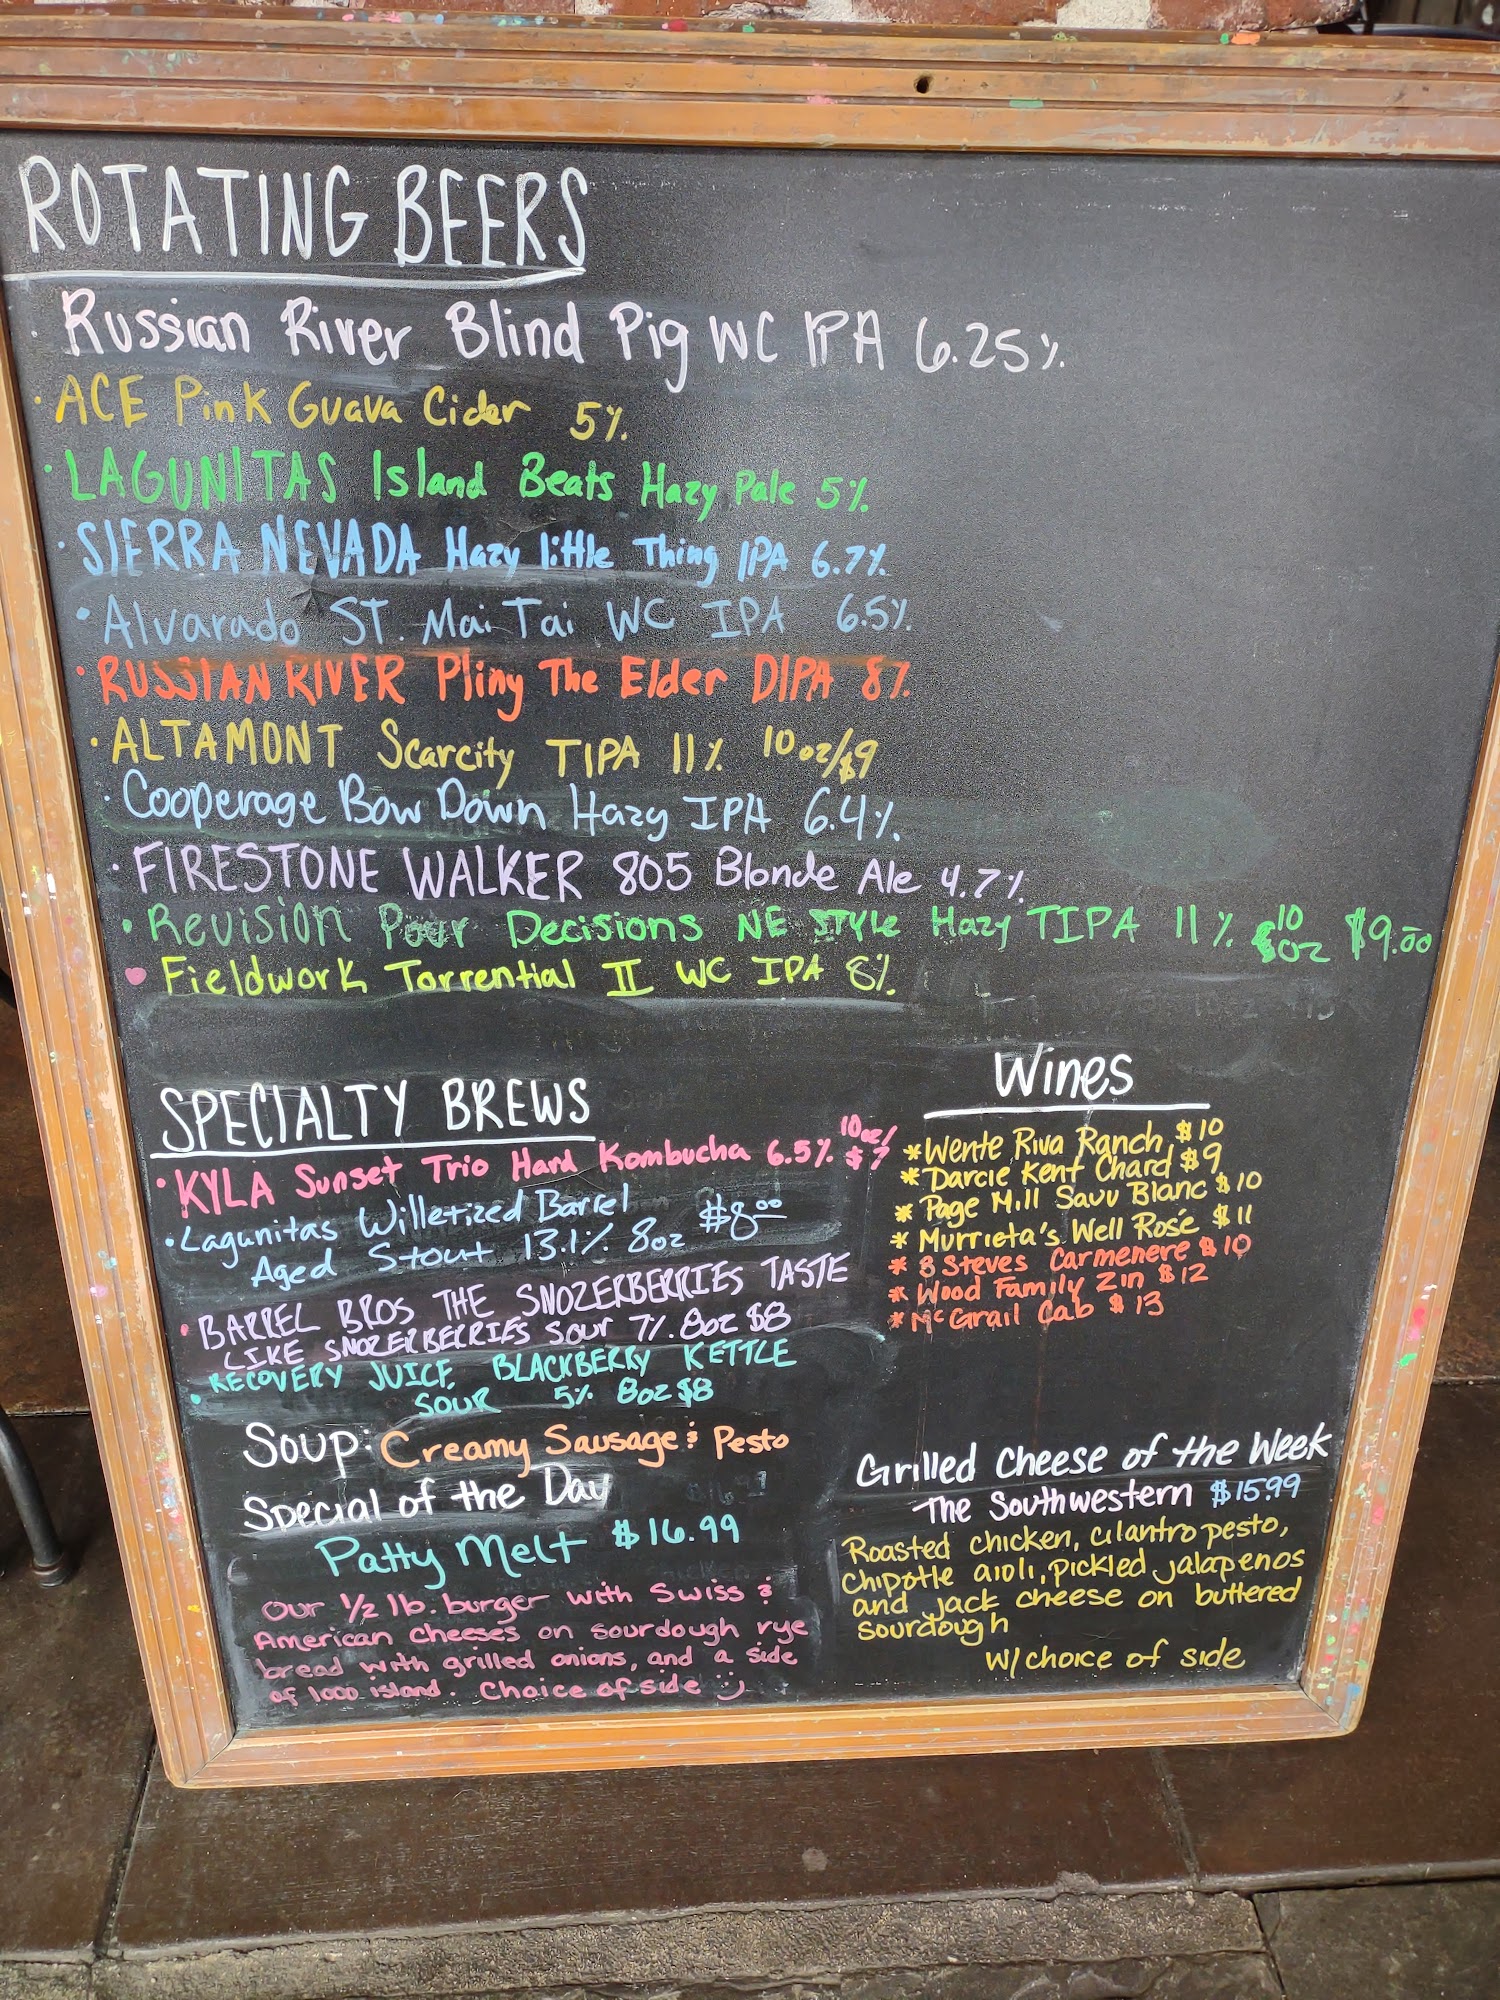 ROTATING BEERS
Russian River Blind Pig WC IPA 6.25%
· ACE Pink Guava Cider 5%
· LAGUNITAS Island Beats Hazy Pale 5%
· SIERRA NEVADA Hazy little Thing IPA 6.7%
· Alvarado ST. Mai Tai WC IPA 6.5%
· RUSSIAN RIVER Pliny The Elder DIPA 8%
· ALTAMONT Scarcity TIPA 11% 10oz/$9
· Cooperage Bow Down Hazy IPA 6.4%
· FIRESTONE WALKER 805 Blonde Ale 4.7%
· Revision Pour Decisions NE STYLE Hazy TIPA 11% 10 oz $9.00
· Fieldwork Torrential II WC IPA 8%
SPECIALTY BREWS
· KYLA Sunset Trio Hard Kombucha 6.5% 10oz/ $7
· Lagunitas Willetized Barrel
Aged Stout 13.1% 8oz $8.00
· BARREL BROS THE SNOZERBERRIES TASTE
LIKE SNOZERBERRIES SOUR 7% 8oz $8
· RECOVERY JUICE BLACKBERRY KETTLE
SOUR 5% 8oz $8
Wines
* Wente Riva Ranch $10
* Darcie Kent Chard $9
* Page Mill Sauv Blanc $10
* Murrieta's Well Rosé $11
* 3 Steves Carmenere $10
* Wood Family Zin $12
* McGrail Cab $13
Soup: Creamy Sausage & Pesto
Special of the Day
Patty Melt $16.99
Our 1/2 lb. burger with Swiss &
American Cheeses on sourdough rye
bread with grilled onions, and a side
of 1000 island. Choice of side :)
Grilled Cheese of the Week
The Southwestern $15.99
Roasted chicken, cilantro pesto,
chipotle aioli, pickled jalapenos
and jack cheese on buttered
sourdough
w/ choice of side